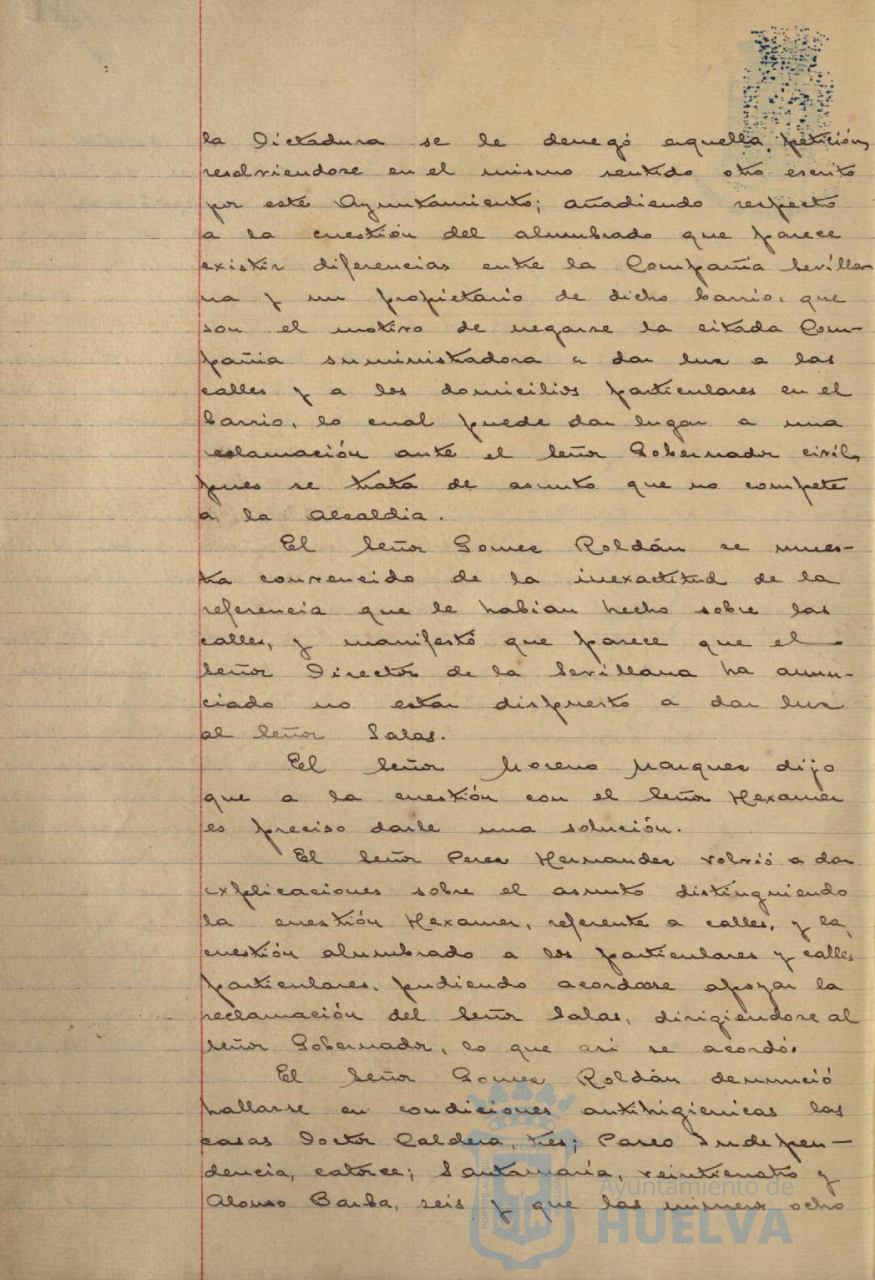 la Dictadura se le denegó aquella petición,
resolviendose en el mismo sentido otro escrito
por este Ayuntamiento; añadiendo respecto
a la cuestión del alumbrado que parece
existir diferencias entre la Compañia Sevilla-
na y un propietario de dicho barrio, que
son el motivo de negarse la citada Com-
pañia suministradora a dar luz a las
calles y a los domicilios particulares en el
barrio, lo cual puede dar lugar a una
reclamación ante el Señor Gobernador civil,
pues se trata de asunto que no compete
a la Alcaldia.
El Señor Gomez Roldán se mues-
tra convencido de la inexactitud de la
referencia que le habian hecho sobre las
calles, y manifestó que parece que el
Señor Director de la Sevillana ha anun-
ciado no estar dispuesto a dar luz
al Señor Salas.
El Señor Moreno Marquez dijo
que a la cuestión con el Señor Hexamer
es preciso darle una solución.
El Señor Perez Hernandez volvió a dar
explicaciones sobre el asunto distinguiendo
la cuestión Hexamer, referente a calles, y la
cuestión alumbrado a los particulares y calles
particulares, pudiendo acordarse apoyar la
reclamación del Señor Salas, dirigiendose al
Señor Gobernador, lo que asi se acordó.
El Señor Gomez Roldán denunció
hallarse en condiciones antihigienicas las
casas Doctor Caldera, tres; Paseo Indepen-
dencia, catorce; Santamaría, veinticuatro y
Alonso Barba, seis y que las número ocho
Ayuntamiento de
HUELVA